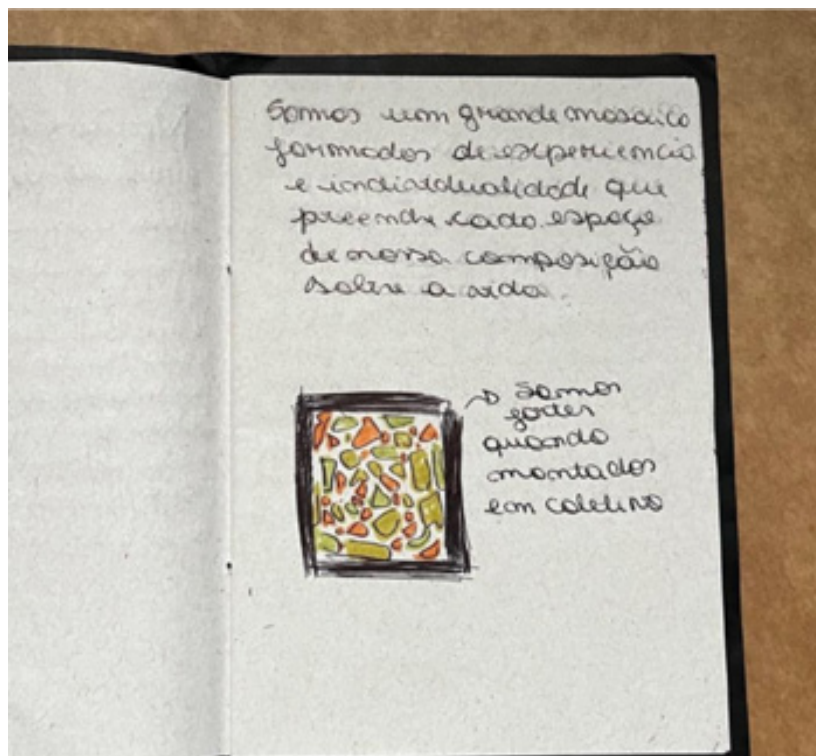 Somos um grande mosaico
formados de experiencia
e individualidade que
preenche cada espaço
de nossa composição
sobre a vida.
Somos
fortes
quando
montados
em coletivo